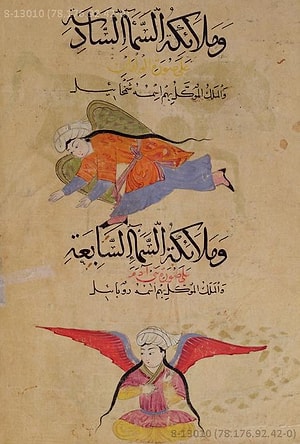 S-13010 (78
وملائكة السماء السادسة
والملك الموكل بهم اسمه
وملائكة السماء السابعة
على صورة بني آدم
والملك الموكل بهم اسمه روبائيل
S-13010 (78.176.92.42-0)